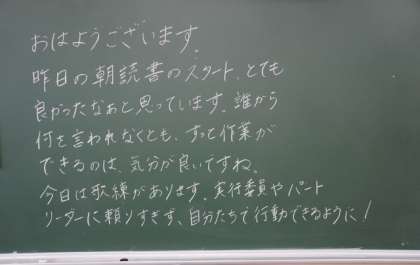 おはようございます。
昨日の朝読書のスタート、とても
良かったなぁと思っています。誰から
何を言われなくとも、すっと作業が
できるのは、気分が良いですね。
今日は歌練があります。実行委員やパート
リーダーに頼りすぎず、自分たちで行動できるように!